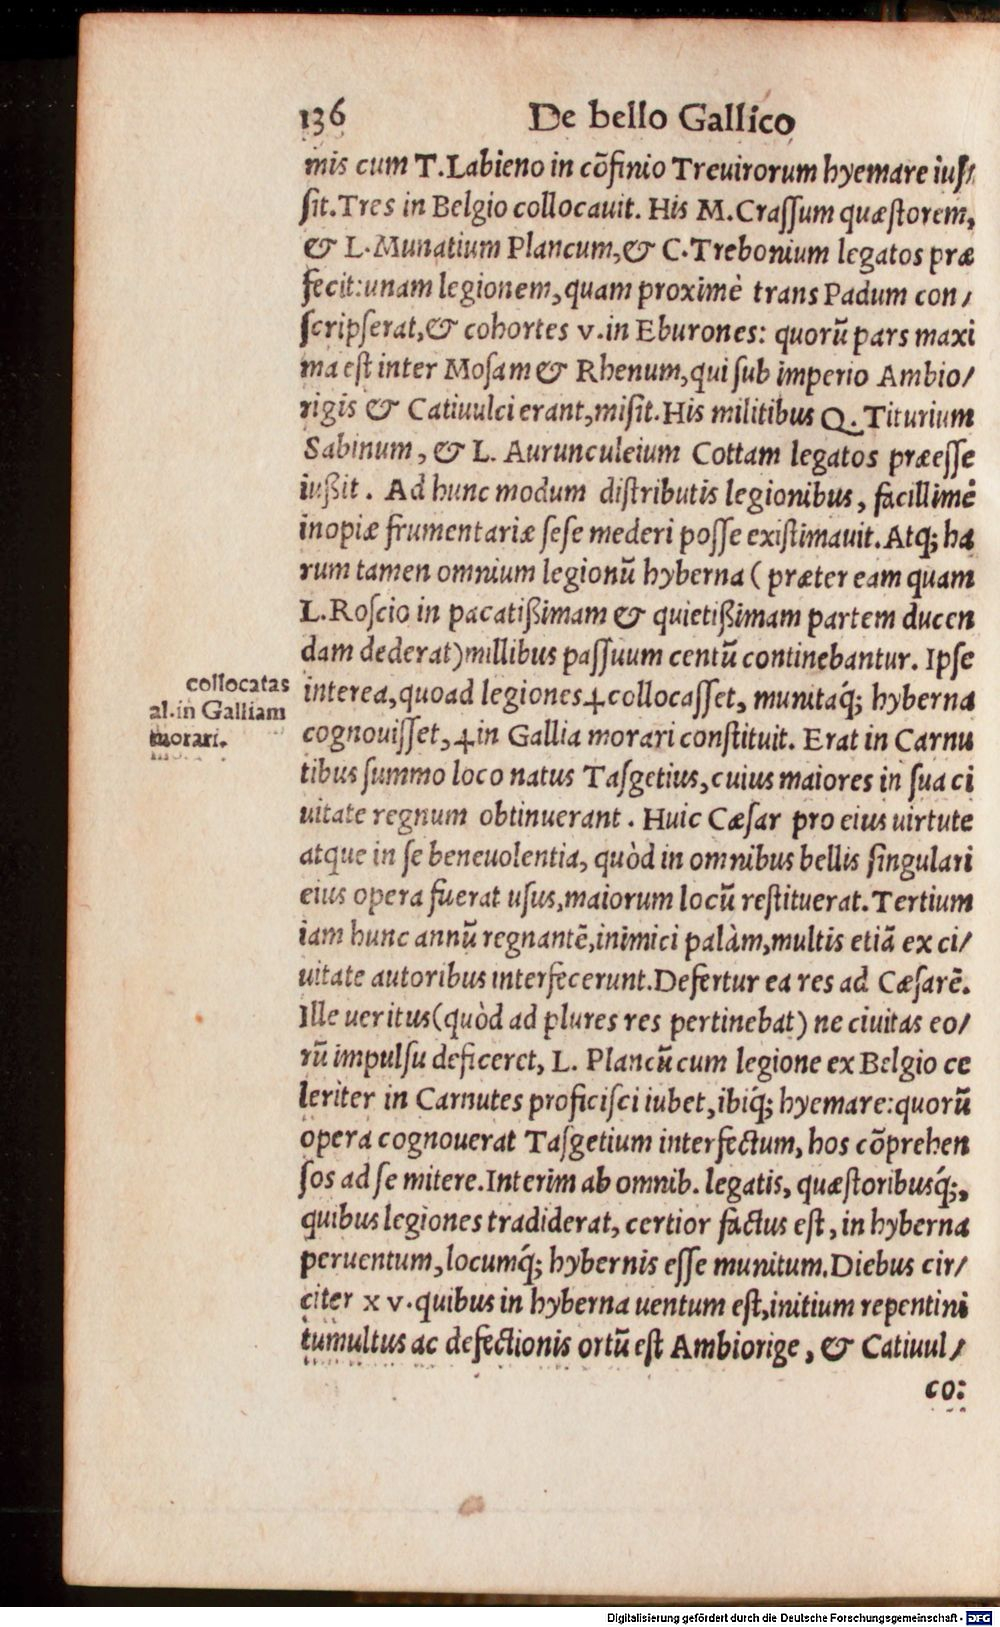 136 De bello Gallico
mis cum T. Labieno in cõfinio Treuirorum hyemare iuſ⸗
ſit. Tres in Belgio collocauit. His M. Craſſum quæſtorem,
& L. Munatium Plancum, & C. Trebonium legatos præ
fecit: unam legionem, quam proximè trans Padum con⸗
ſcripſerat, & cohortes v. in Eburones: quorũ pars maxi
ma eſt inter Moſam & Rhenum, qui ſub imperio Ambio⸗
rigis & Catiuulci erant, miſit. His militibus Q. Titurium
Sabinum, & L. Aurunculeium Cottam legatos præeſſe
iußit. Ad hunc modum diſtributis legionibus, facillimè
inopiæ frumentariæ ſeſe mederi poſſe exiſtimauit. Atq; ha
rum tamen omnium legionũ hyberna (præter eam quam
L. Roſcio in pacatißimam & quietißimam partem ducen
dam dederat) millibus paſſuum centũ continebantur. Ipſe
interea, quoad legiones ✢ collocaſſet, munitaq́; hyberna
cognouiſſet, ✢ in Gallia morari conſtituit. Erat in Carnu
tibus ſummo loco natus Taſgetius, cuius maiores in ſua ci
uitate regnum obtinuerant. Huic Cæſar pro eius uirtute
atque in ſe beneuolentia, quòd in omnibus bellis ſingulari
eius opera fuerat uſus, maiorum locũ reſtituerat. Tertium
iam hunc annũ regnantẽ, inimici palàm, multis etiã ex ci⸗
uitate autoribus interfecerunt. Defertur ea res ad Cæſarẽ.
Ille ueritus (quòd ad plures res pertinebat) ne ciuitas eo⸗
rũ impulſu deficeret, L. Plancũ cum legione ex Belgio ce
leriter in Carnutes proficiſci iubet, ibiq́; hyemare: quorũ
opera cognouerat Taſgetium interfectum, hos cõprehen
ſos ad ſe mitere. Interim ab omnib. legatis, quæſtoribusq́;,
quibus legiones tradiderat, certior factus eſt, in hyberna
peruentum, locumq́; hybernis eſſe munitum. Diebus cir⸗
citer xv. quibus in hyberna uentum eſt, initium repentini
tumultus ac defectionis ortũ eſt Ambiorige, & Catiuul⸗
co:
collocatas
al. in Galliam
morari.
Digitalisierung gefördert durch die Deutsche Forschungsgemeinschaft - DFG